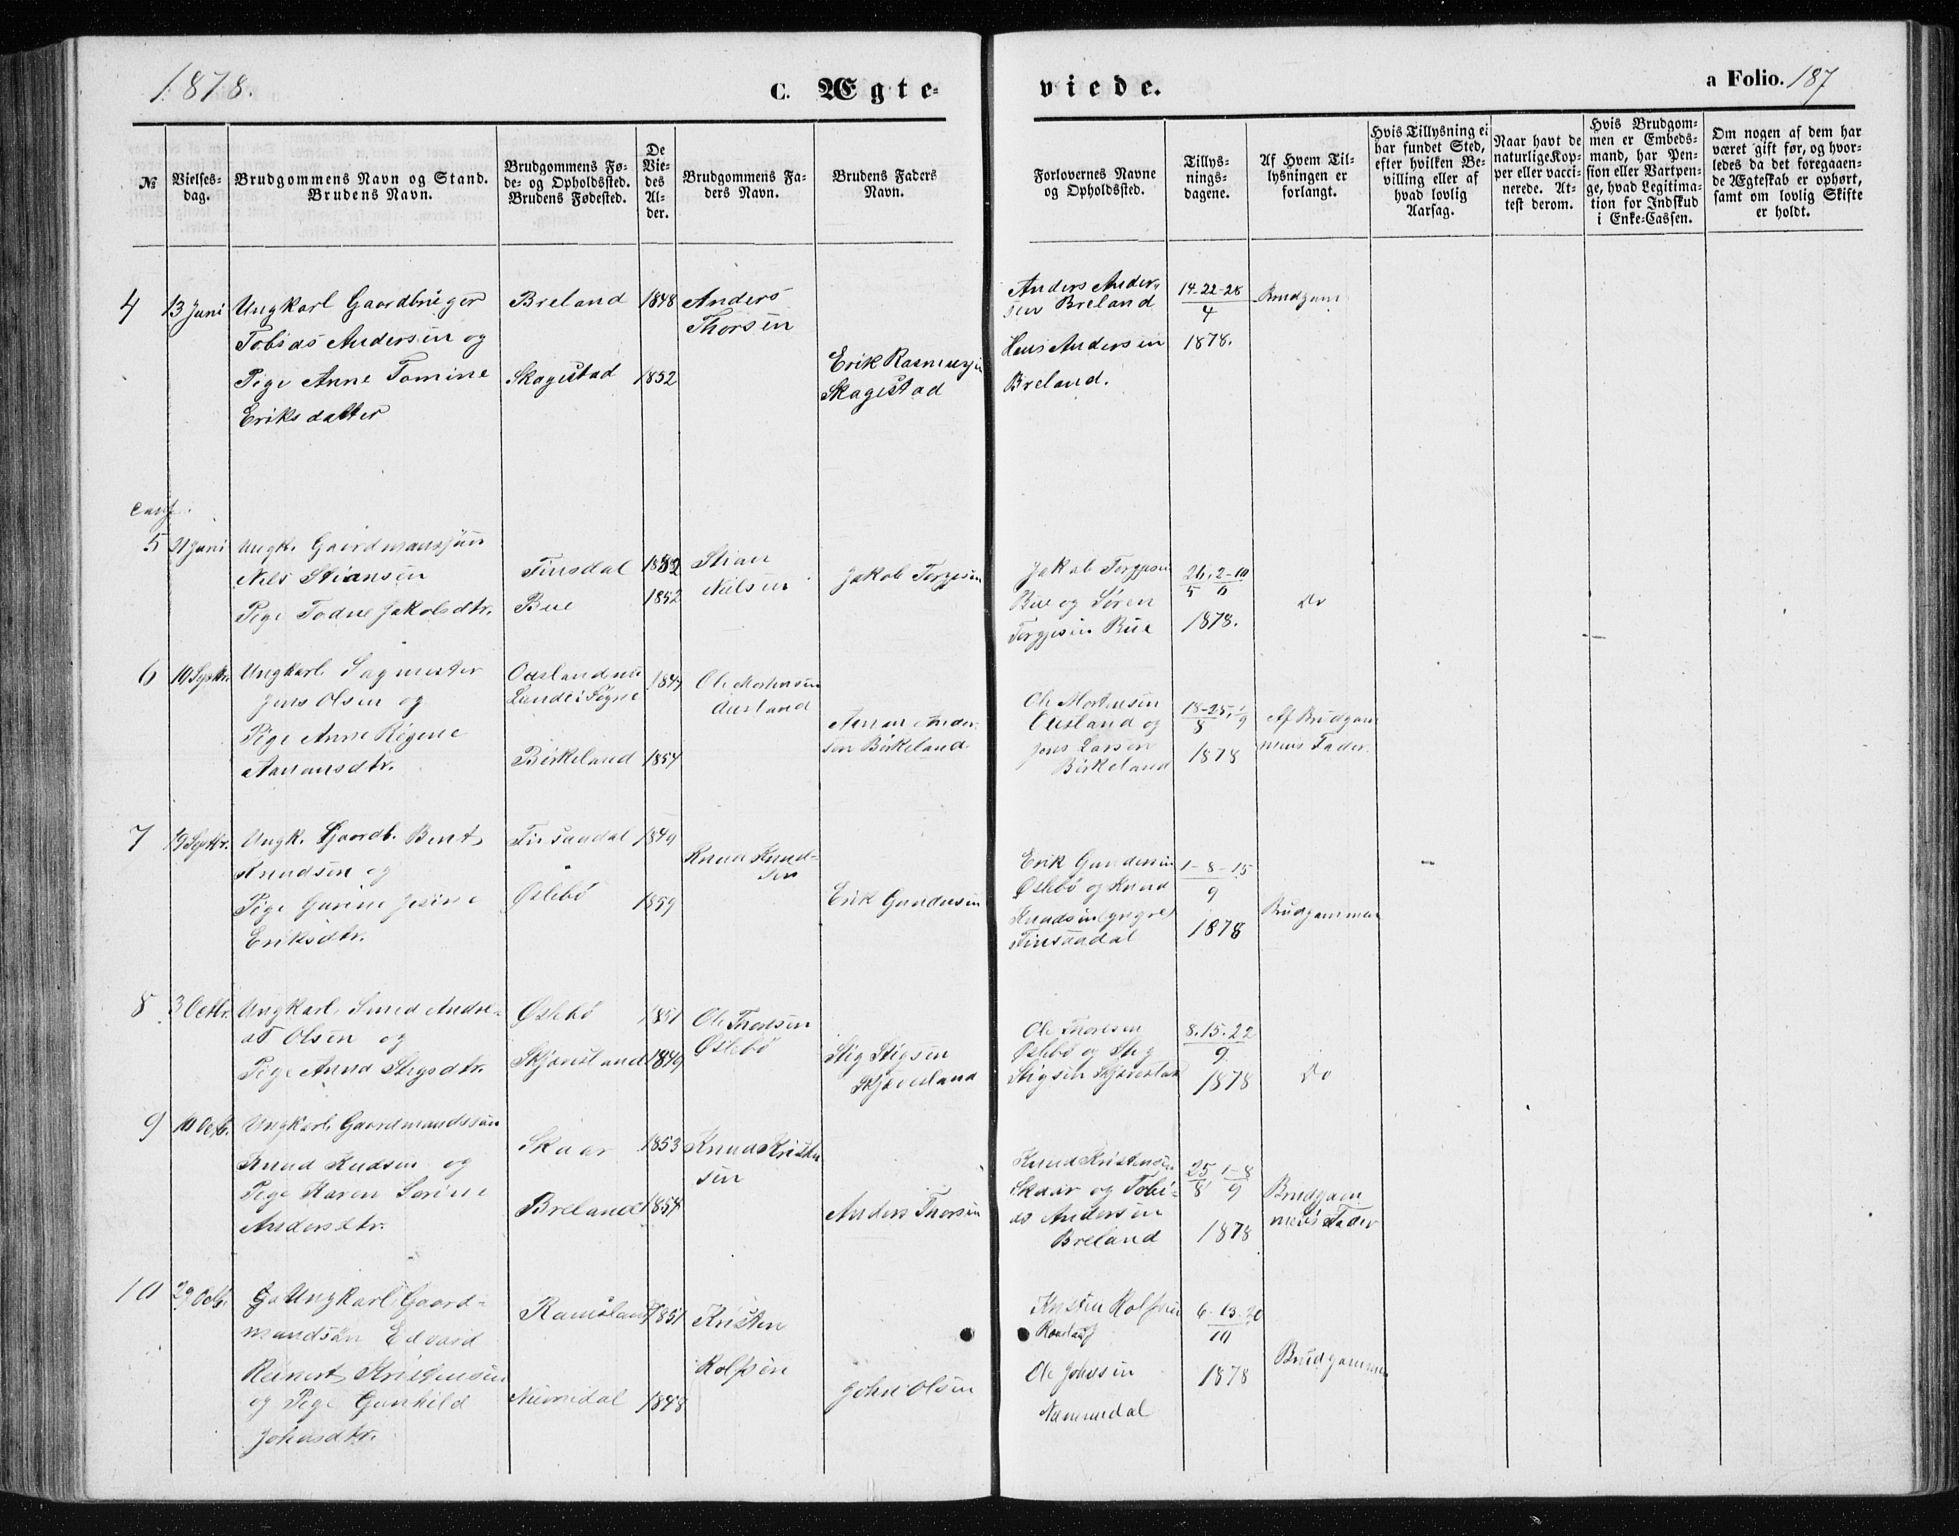 1878.
C. Ægte-
viede.
a Folio. 187
№
Vielses-
dag.
Brudgommens Navn og Stand.
Brudens Navn.
Brudgommens Fø-
de- og Opholdssted.
Brudens Fødested.
De
Vie-
des
Al-
der.
Brudgommens Fa-
ders Navn.
Brudens Faders
Navn.
Forlovernes Navne
og Opholdssted.
Tillys-
nings-
dagene.
Af Hvem Til-
lysningen er
forlangt.
Hvis Tillysning ei
har fundet Sted,
efter hvilken Be-
villing eller af
hvad lovlig
Aarsag.
Naar havt de
naturlige Kop-
per eller vacci-
nerede. At-
test derom.
Hvis Brudgom-
men er Embeds-
mand, har Pen-
sion eller Vartpen-
ge, hvad Legitima-
tion for Indskud
i Enke-Cassen.
Om nogen af dem har
været gift før, og hvor-
ledes da det foregaaen-
de Ægteskab er ophørt,
samt om lovlig Skifte
er holdt.
4
13 Juni
Ungkarl Gaardbruger
Tobias Andersen og
Pige Anne Tomine
Eriksdatter
Breland
Skagestad
1848
1852
Anders
Thorsen
Erik Rasmussen
Skagestad
Anders Ander-
sen Breland
Hans Andersen
Breland.
14-22-28
4
1878.
Brudgom
5
21 Juni
Ungk. Gaardmansøn
Nels Stiansen
Pige Todne Jakobsdtr.
Finsdal
Bue
1852
1852
Stian
Nielsen
Jakob Torgjesen
Jakob Torgjesen
Bue og Søren
Torgjesen Bue
26. 2-10
5 6
1878.
Do
6
10 Septbr.
Ungkarl Sagmester
Jens Olsen og
Pige Anne Regine
Aanonsdtr.
Lunde i Søgne
Birkeland
1854
Ole Mortensen
Ausland
Aanon Ander-
sen Birkeland.
Ole Mortensen
Ausland og
Jens Larsen
Birkeland
18-25. 1
8 9
1878
Af Brudgom
mens Fader.
7
19 Septbr.
Ungk. Gaardb. Bent
Knudsen og
Pige Gurine Jesine
Eriksdtr.
Finsaadal
Øslebø
1849
1859
Knud Knud-
sen
Erik Gundersen
Erik Gundersen
Øslebø og Knud
Knudsen (yngre)
Finsaadal
1-8-15
9
1878
Brudgommen
8
3 Octbr.
Ungkarl Smed Andre-
as Olsen og
Pige Anna Stigsdtr.
Øslebø
Skjævesland
1851
1849
Ole Thorsen
Øslebø
Stig Stigsen
Skjævesland
Ole Thorsen
Øslebø og Stig
Stigsen Skjævesland
8.15.22
9
1878
Do
9
10 Octb.
Ungkarl Gaardmandssøn
Knud Knudsen og
Pige Karen Serine
Andersdtr.
Skaar
Breland
1853
1854
Knud Kristen
sen
Anders Thorsen
Knud Kristensen
Skaar og Tobi-
as Andersen
Breland
25 1-8
8 9
1878
Brudgom
mens Fader
10
29 Octb.
Ungkarl Gaard-
mandsøn Edvard
Reinert Kristensen
og Pige Gunhild
Johnsdtr.
Ramsland
1851
1848
Kristen
Rolfsen
John Olsen
Kristen Rolfsen
Ole Johnsen
6-13-20
10
1878
Brudgommen